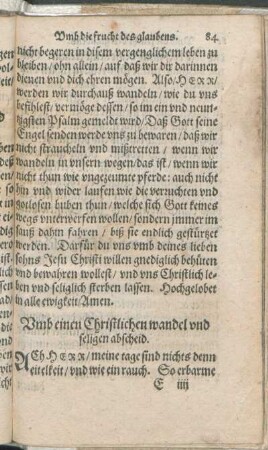 Vmb die frucht des glaubens. 84.
nicht begeren in disem vergenglichem leben zu
bleiben / ohn allein / auf daß wir dir darinnen
dienen vnd dich ehren mögen. Also / HERR /
werden wir durchauß wandeln / wie du vns
befihlest / vermöge dessen / so im ein vnd neun-
tzigsten Psalm gemeldt wird / Daß Gott seine
Engel senden werde vns zu bewaren / daß wir
nicht straucheln vnd mißtretten / wenn wir
wandeln in vnsern wegen / das ist / wenn wir
nicht thun wie vngezeumte pferde: auch nicht
hin vnd wider lauffen wie die verruchten vnd
gotlosen buben thun / welche sich Gott keines
wegs vnterwerfen wollen / sondern jmmer im
sauß dahin fahren / biß sie endlich gestürtzet
werden. Darfür du vns vmb deines lieben
sohns Jesu Christi willen gnediglich behüten
vnd bewahren wollest / vnd vns Christlich le-
ben vnd seliglich sterben lassen. Hochgelobet
in alle ewigkeit / Amen.
Vmb einen Christlichen wandel vnd
seligen abscheid.
ACh HERR / meine tage sind nichts denn
eitelkeit / vnd wie ein rauch. So erbarme
E iiij